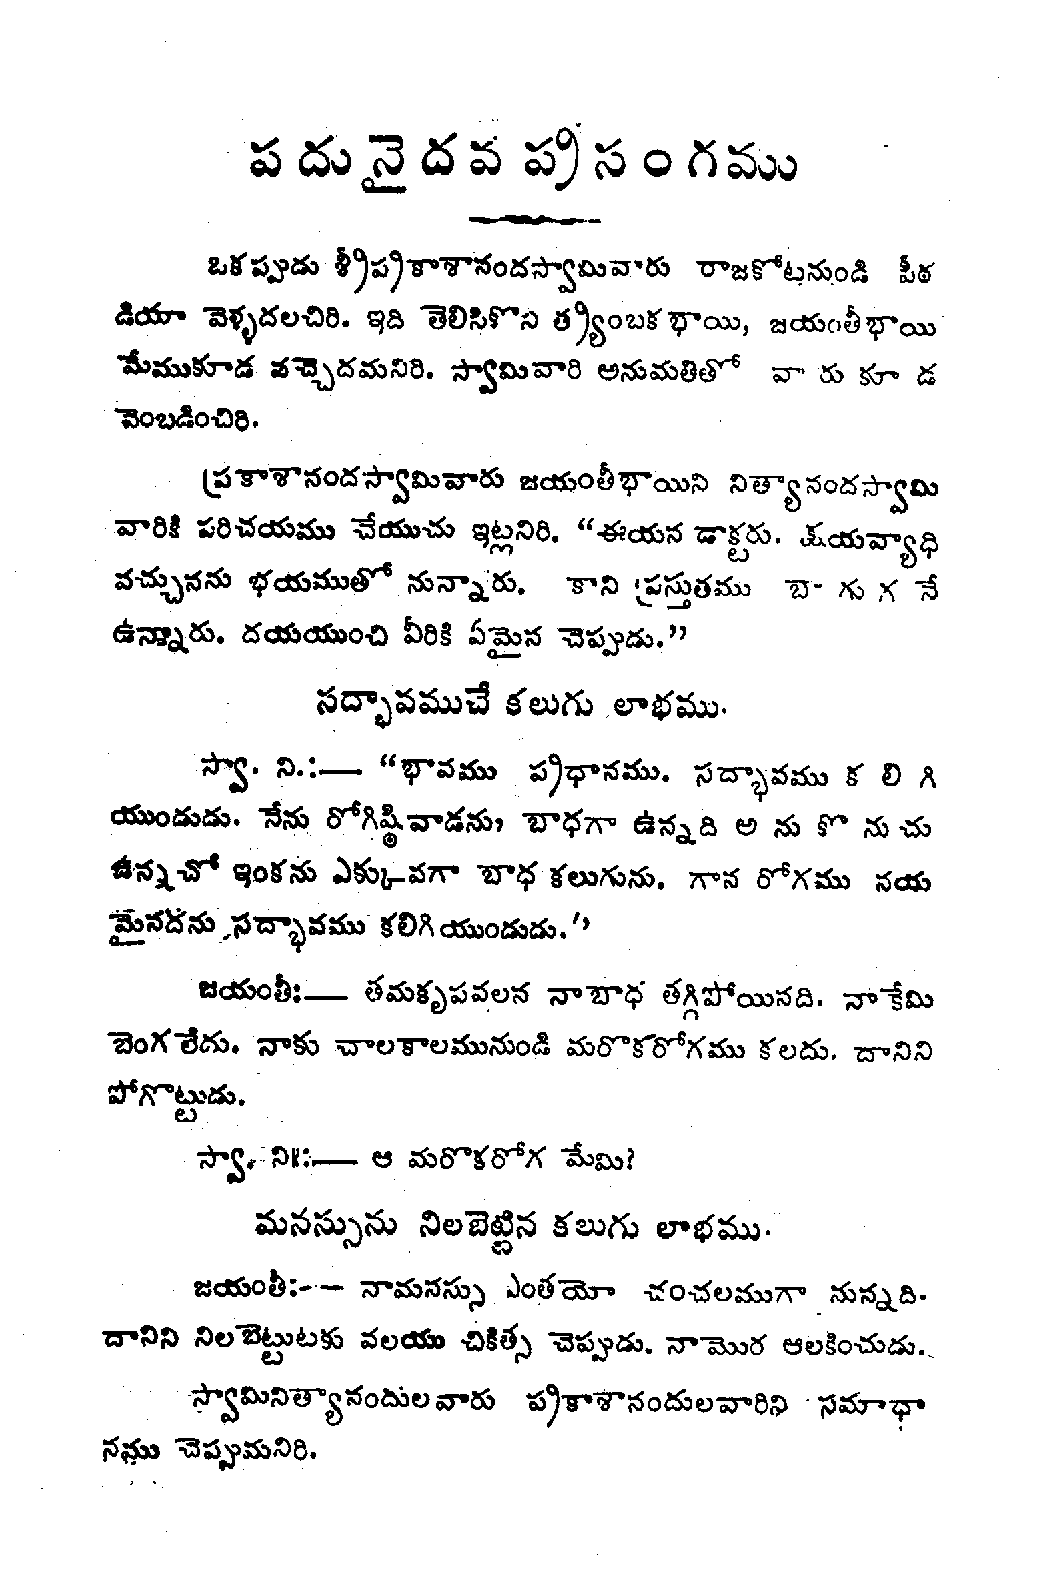 పదునైదవ ప్రసంగము
ఒకప్పుడు శ్రీప్రకాశానందస్వామివారు రాజకోటనుండి పీఠ
డియా వెళ్ళదలచిరి. ఇది తెలిసికొని త్ర్యింబకభాయి, జయంతీభాయి
మేముకూడ వచ్చెదమనిరి. స్వామివారి అనుమతితో వారుకూడ
వెంబడించిరి.
ప్రకాశానందస్వామివారు జయంతీభాయిని నిత్యానందస్వామి
వారికి పరిచయము చేయుచు ఇట్లనిరి. “ఈయన డాక్టరు. క్షయవ్యాధి
వచ్చునను భయముతో నున్నారు. కాని ప్రస్తుతము బాగుగనే
ఉన్నారు. దయయుంచి వీరికి ఏమైన చెప్పుడు.”
సద్భావముచే కలుగు లాభము.
స్వా. ని.:— “భావము ప్రధానము. సద్భావము కలిగి
యుండుడు. నేను రోగిష్ఠివాడను, బాధగా ఉన్నది అనుకొనుచు
ఉన్నచో ఇంకను ఎక్కువగా బాధ కలుగును. గాన రోగము నయ
మైనదను సద్భావము కలిగియుండుడు.”
జయంతీ:— తమకృపవలన నాబాధ తగ్గిపోయినది. నాకేమి
బెంగలేదు. నాకు చాలకాలమునుండి మరొకరోగము కలదు. దానిని
పోగొట్టుడు.
స్వా. ని:— ఆ మరొకరోగ మేమి?
మనస్సును నిలబెట్టిన కలుగు లాభము.
జయంతీ:-— నామనస్సు ఎంతయో చంచలముగా నున్నది.
దానిని నిలబెట్టుటకు వలయు చికిత్స చెప్పుడు. నామొర ఆలకించుడు.
స్వామినిత్యానందులవారు ప్రకాశానందులవారిని సమాధా
నము చెప్పుమనిరి.